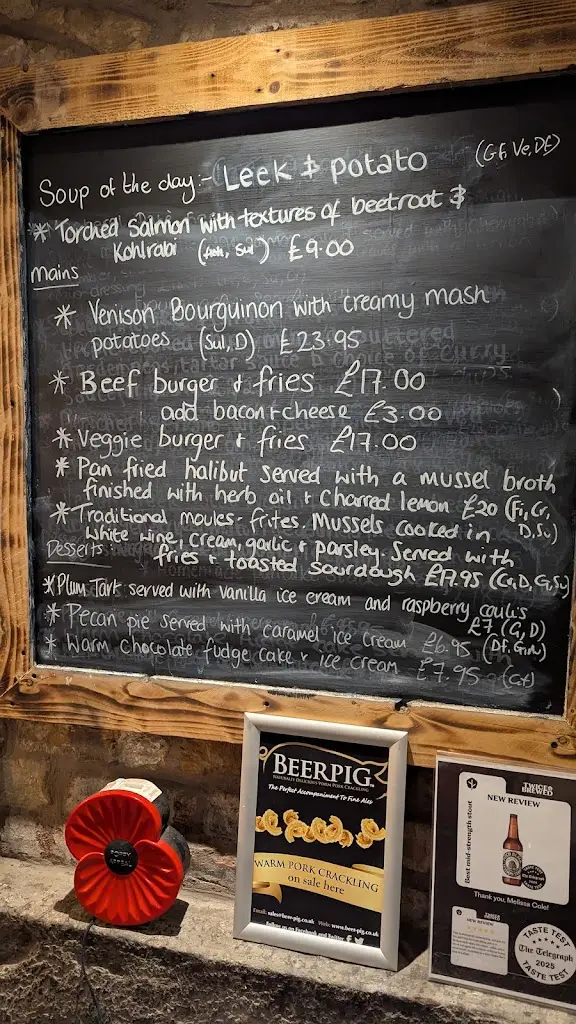 Soup of the day:- Leek & potato (Gf, Ve, Df)
* Torched Salmon with textures of beetroot &
Kohlrabi (Fish, Sul) £9.00
Mains
* Venison Bourguinon with creamy mash
potatoes (Sul, D) £23.95
* Beef burger + fries £17.00
add bacon+cheese £3.00
* Veggie burger + fries £17.00
* Pan fried halibut served with a mussel broth
finished with herb oil + charred lemon £20 (Fi, Cr,
D, Su)
* Traditional moules-frites. Mussels cooked in
white wine, cream, garlic + parsley. Served with
fries + toasted sourdough £17.95 (Cr, D, G, Su)
Desserts
* Plum Tart served with vanilla ice cream and raspberry coulis
£7 (G, D)
* Pecan pie served with caramel ice cream £6.95 (Df, G, N)
* Warm chocolate fudge cake + ice cream £7.95 (Gf)
POPPY
APPEAL
BEERPIG
NATURALLY DELICIOUS WARM PORK CRACKLING
The Perfect Accompaniment To Fine Ales
WARM PORK CRACKLING
on sale here
Email: sales@beer-pig.co.uk Web: www.beer-pig.co.uk
Follow us on Facebook and Twitter
TWICE
BREWED
NEW REVIEW
Best mid-strength stout
Thank you, Melissa Cole!
NEW REVIEW
TASTE TEST
The Telegraph
2025
TASTE TEST